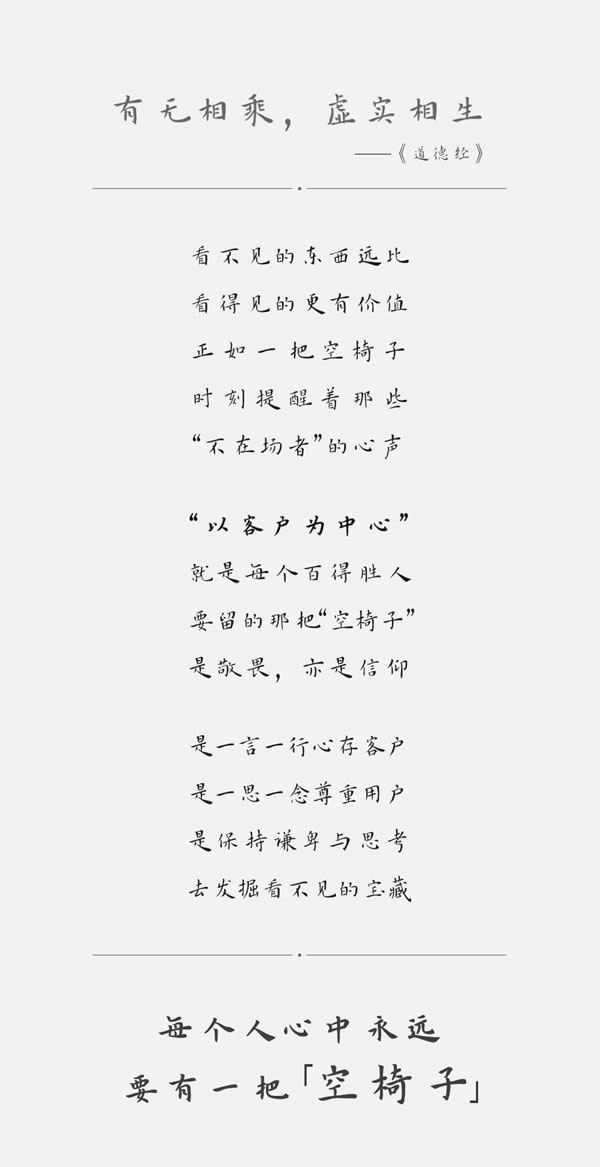 有无相乘，虚实相生
——《道德经》
看不见的东西远比
看得见的更有价值
正如一把空椅子
时刻提醒着那些
“不在场者”的心声
“以客户为中心”
就是每个百得胜人
要留的那把“空椅子”
是敬畏，亦是信仰
是一言一行心存客户
是一思一念尊重用户
是保持谦卑与思考
去发掘看不见的宝藏
每个人心中永远
要有一把「空椅子」